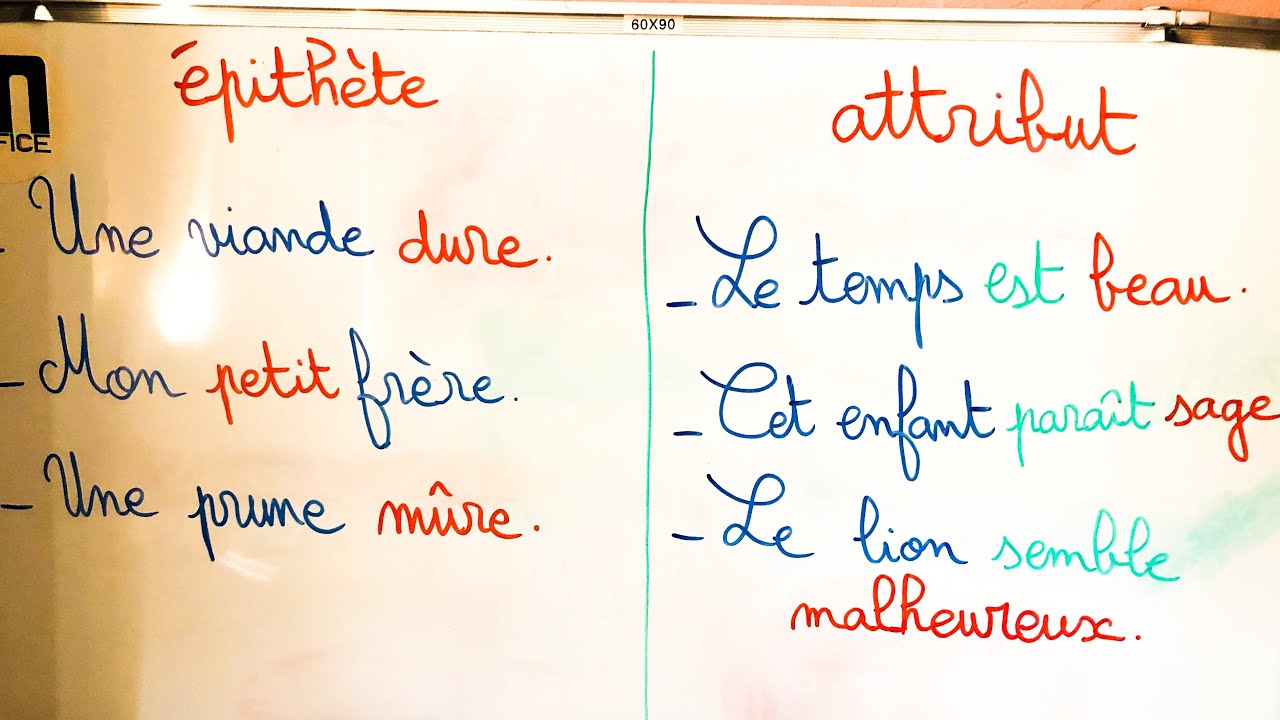 60X90
FICE
épithète
- Une viande dure.
- Mon petit frère.
- Une prune mûre.
attribut
- Le temps est beau.
- Cet enfant paraît sage
- Le lion semble
malheureux.